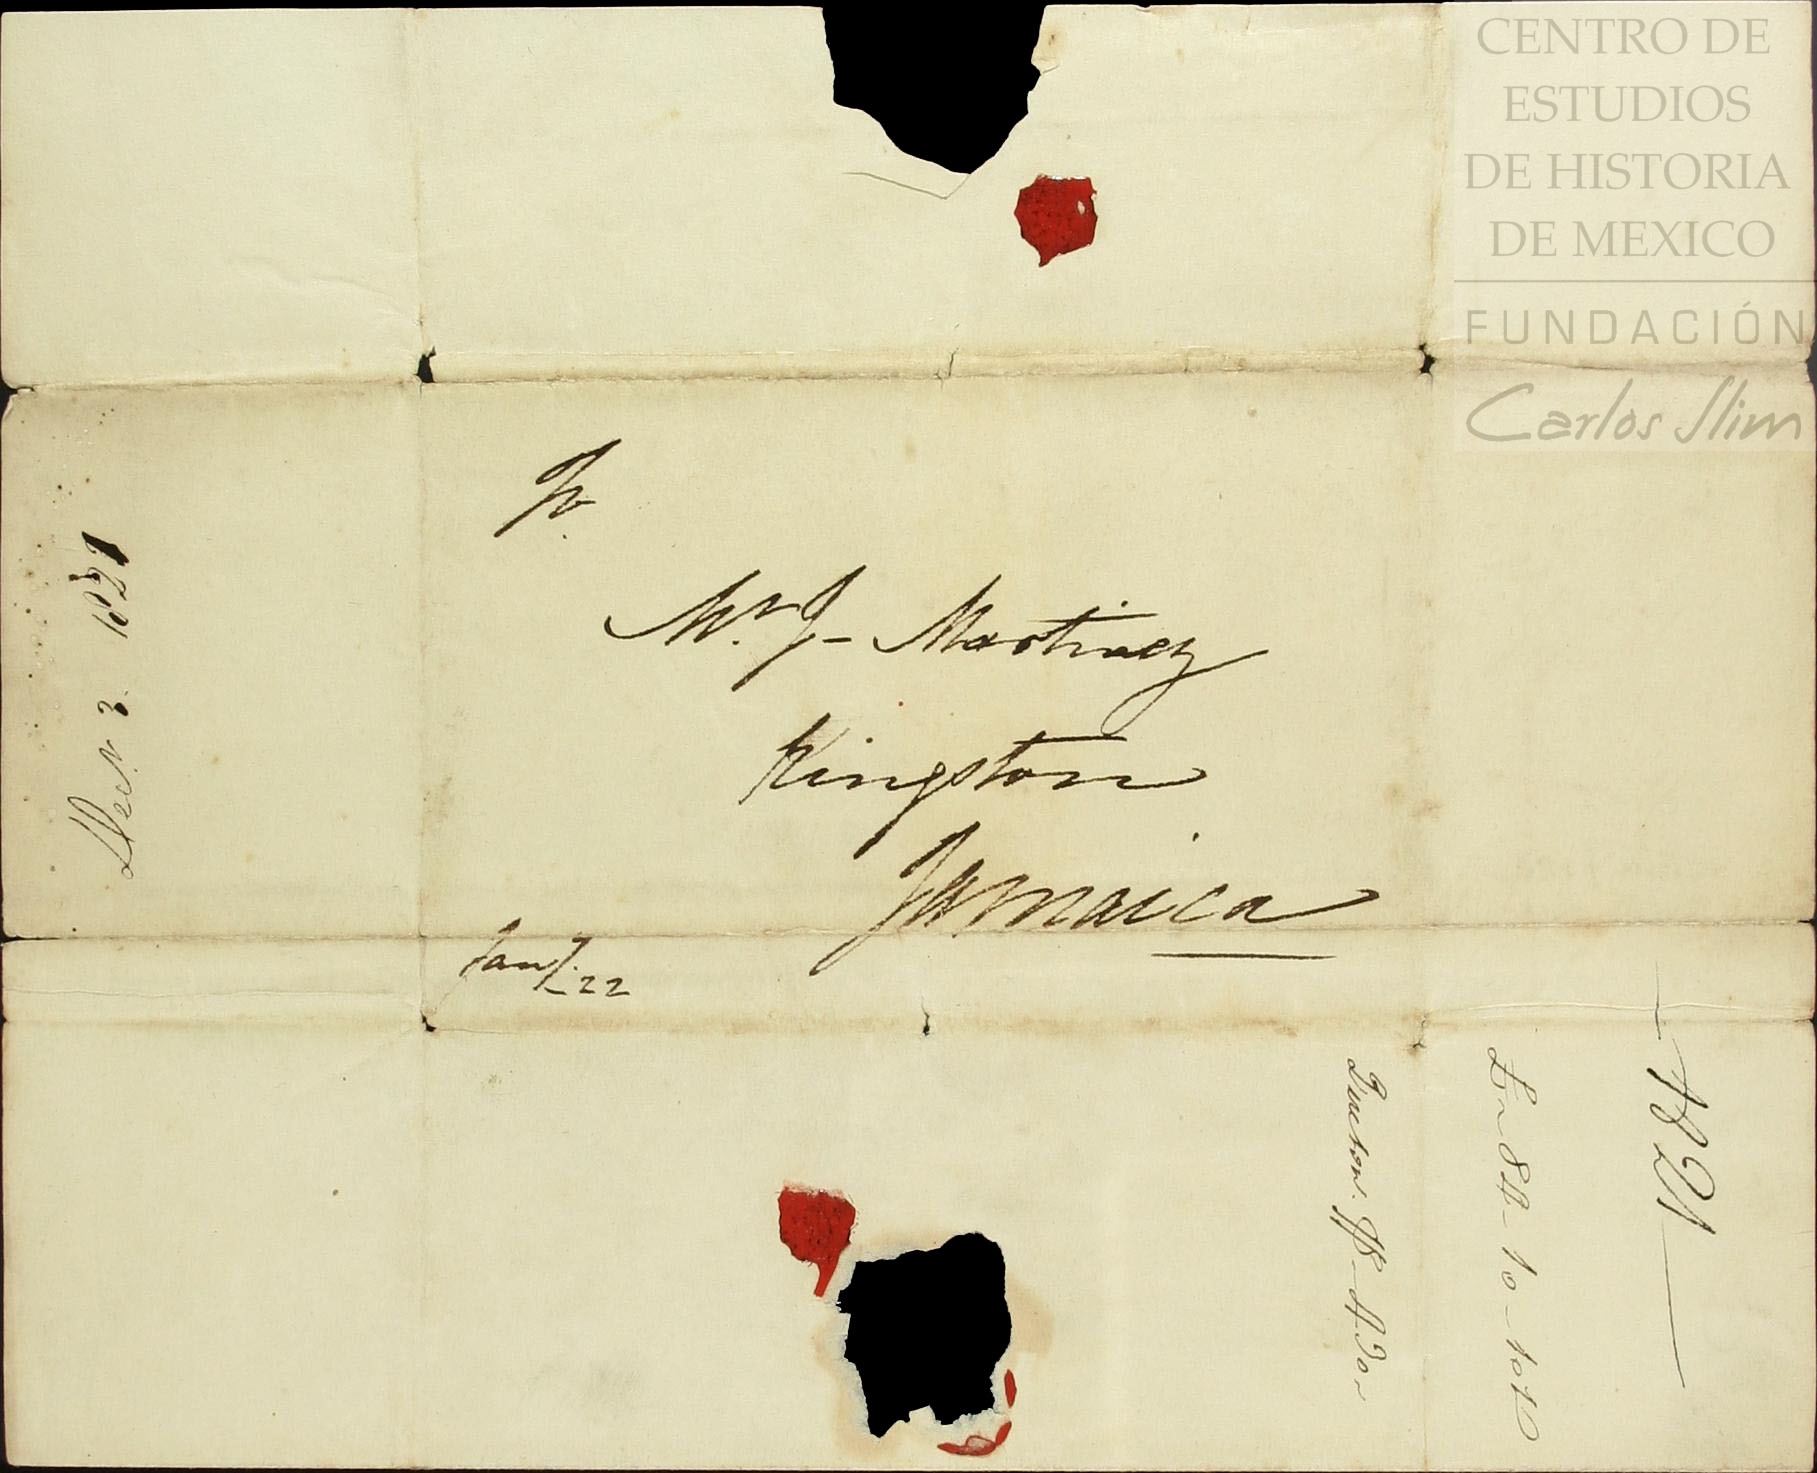 CENTRO DE
ESTUDIOS
DE HISTORIA
DE MEXICO
FUNDACIÓN
Carlos Slim
To.
Mr. J- Martinez
Kingston
Jamaica
Jany. 22
3 1821
1821
£ 84 - 10 - 10